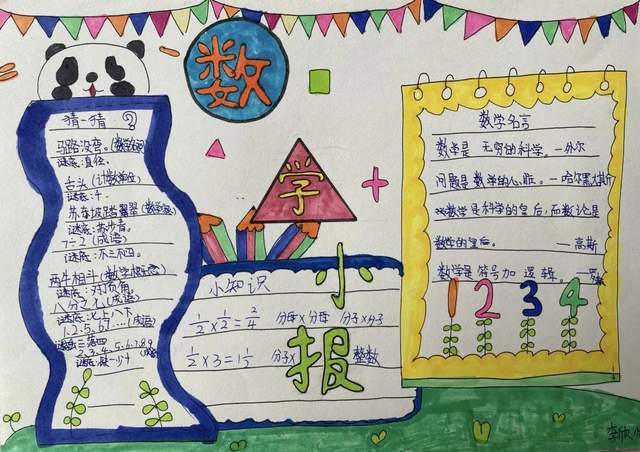 数
学
小
报
猜一猜
马路没弯。(数学名词)
谜底:直径。
舌头(计数单位)
谜底:千。
谜底:苏步青。
7÷2(成语)
谜底:不三不四。
两牛相斗(数学概念)
谜底:对顶角。
谜底:七上八下
1.2.5.6.7…(成语)
谜底:丢三落四
小知识
1/2 × 2/2 = 2/4 分母×分母 分子×分子
1/2 × 3 = 1 1/2 分子× 整数
数学名言
数学是 无穷的科学。—外尔
问题是数学的心脏。—哈尔莫斯
数学是科学的皇后,而数论是
数学的皇后。 —高斯
数学是符号加 逻辑。—罗素
1 2 3 4
李欣